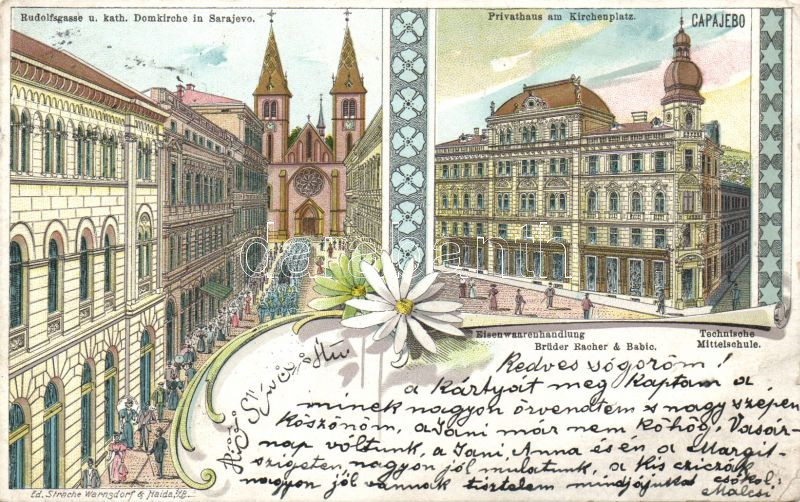 Rudolfsgasse u. kath. Domkirche in Sarajevo.
Privathaus am Kirchenplatz.
САРАЈЕВО
Eisenwaarenhandlung
Brüder Racher & Babic.
Technische
Mittelschule.
Kedves sógoröm!
a kártyát meg kaptam a
minek nagyon örvendtem s nagy szépen
köszönöm, a Jani már nem köhög, Vasár-
nap voltunk, a Jani, Anna és én a Margit-
szigeten nagyon jól mulatunk, a kis cziczák
nagyon jól vannak tisztelem mindjájukat csókol:
Ed. Strache Warnsdorf & Haida, i/B.